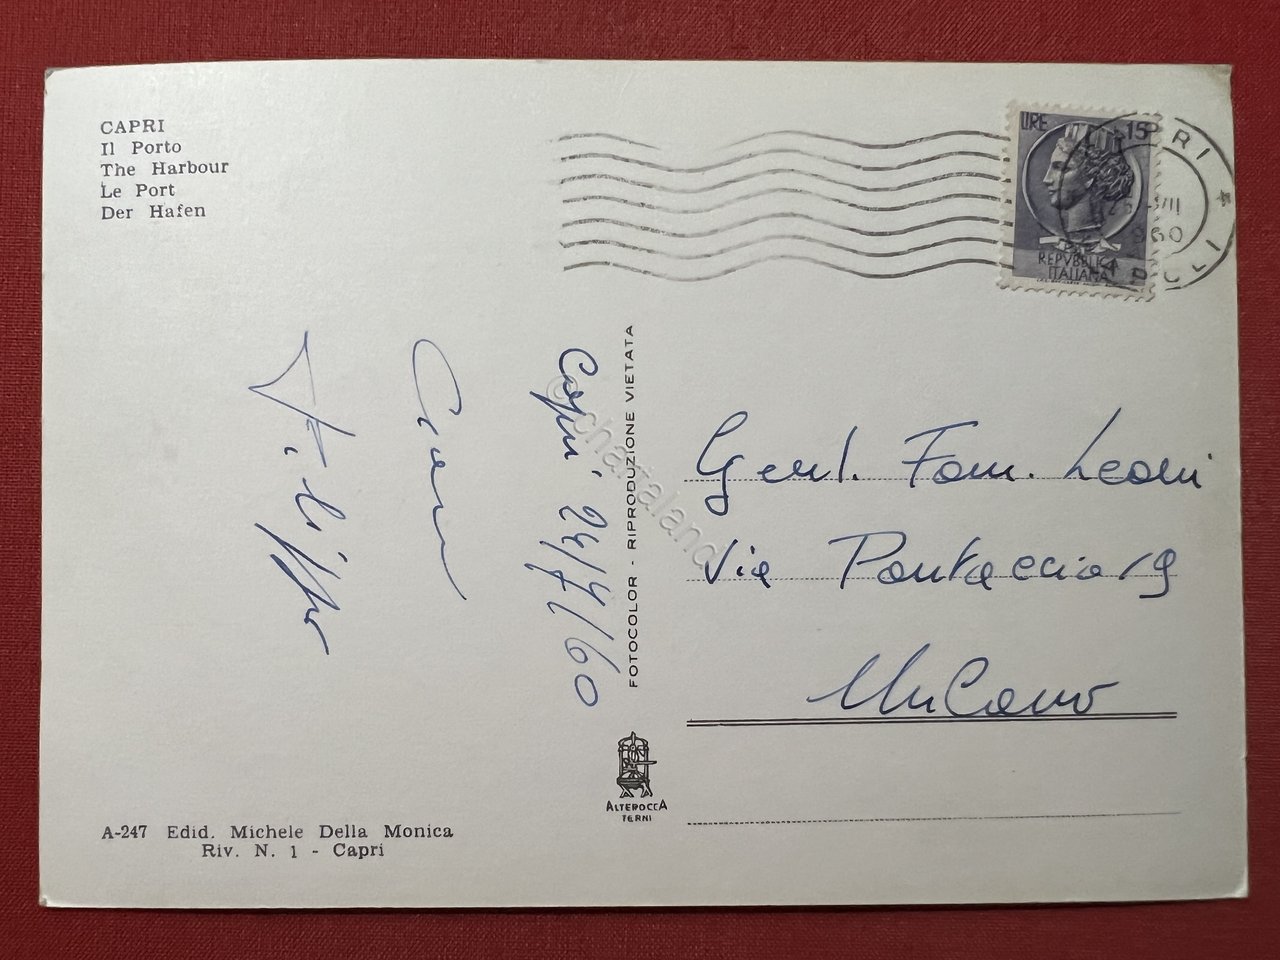 CAPRI
Il Porto
The Harbour
Le Port
Der Hafen
LIRE 15
REPVBBLICA
ITALIANA
1960
Capri 24/7/60
Filippo
FOTOCOLOR - RIPRODUZIONE VIETATA
© chartaland
Gent. Fam. Leoni
Via Pontaccio 19
Milano
ALTEROCCA
TERNI
A-247 Edid. Michele Della Monica
Riv. N. 1 - Capri